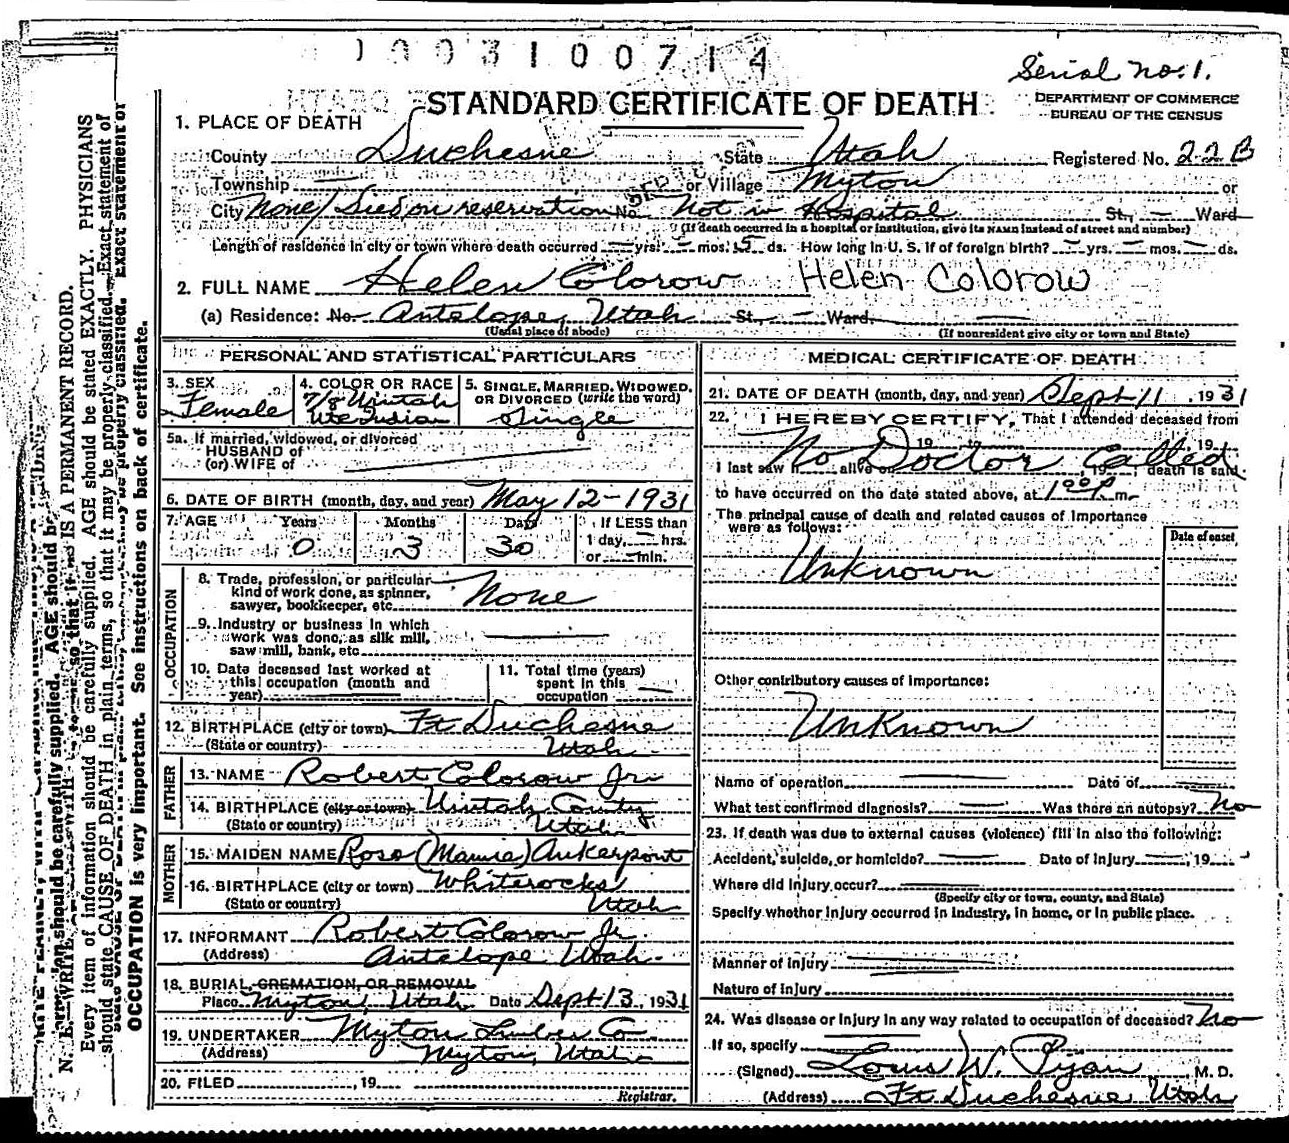 1003100714
Serial no. 1.
STANDARD CERTIFICATE OF DEATH
DEPARTMENT OF COMMERCE
BUREAU OF THE CENSUS
1. PLACE OF DEATH
County Duchesne State Utah Registered No. 22B
Township or Village Myton or
City None / Died on reservation No. Not in Hospital St., — Ward —
(If death occurred in a hospital or institution, give its NAME instead of street and number)
Length of residence in city or town where death occurred — yrs. — mos. 5 ds. How long in U. S. if of foreign birth? — yrs. — mos. — ds.
2. FULL NAME Helen Colorow Helen Colorow
(a) Residence: No. Antelope, Utah St., — Ward. —
(Usual place of abode) (If nonresident give city or town and State)
PERSONAL AND STATISTICAL PARTICULARS
3. SEX Female
4. COLOR OR RACE 7/8 Uintah Ute Indian
5. SINGLE, MARRIED, WIDOWED, OR DIVORCED (write the word) Single
5a. If married, widowed, or divorced
HUSBAND of
(or) WIFE of
6. DATE OF BIRTH (month, day, and year) May 12-1931
7. AGE Years Months Days If LESS than
0 3 30 1 day, — hrs.
or — min.
OCCUPATION
8. Trade, profession, or particular
kind of work done, as spinner,
sawyer, bookkeeper, etc. None
9. Industry or business in which
work was done, as silk mill,
saw mill, bank, etc.
10. Date deceased last worked at
this occupation (month and
year)
11. Total time (years)
spent in this
occupation —
12. BIRTHPLACE (city or town) Ft Duchesne
(State or country) Utah
FATHER
13. NAME Robert Colorow Jr.
14. BIRTHPLACE (city or town) Uintah County
(State or country) Utah
MOTHER
15. MAIDEN NAME Rose (Mamie) Ankerpont
16. BIRTHPLACE (city or town) Whiterocks
(State or country) Utah
17. INFORMANT Robert Colorow Jr.
(Address) Antelope Utah
18. BURIAL, CREMATION, OR REMOVAL
Place Myton, Utah Date Sept 13, 1931
19. UNDERTAKER Myton Lumber Co
(Address) Myton, Utah
20. FILED , 19
Registrar.
MEDICAL CERTIFICATE OF DEATH
21. DATE OF DEATH (month, day, and year) Sept 11, 1931
22. I HEREBY CERTIFY, That I attended deceased from
No Doctor Called
19 19
I last saw h alive on , 19 ; death is said
to have occurred on the date stated above, at 1 00 P m.
The principal cause of death and related causes of importance
were as follows: Date of onset
Unknown
Other contributory causes of importance:
Unknown
Name of operation — Date of —
What test confirmed diagnosis? — Was there an autopsy? No
23. If death was due to external causes (violence) fill in also the following:
Accident, suicide, or homicide? — Date of injury —, 19 —
Where did injury occur? —
(Specify city or town, county, and State)
Specify whether injury occurred in industry, in home, or in public place.
Manner of injury
Nature of injury
24. Was disease or injury in any way related to occupation of deceased? No
If so, specify
(Signed) Louis W. Pyan, M. D.
(Address) Ft Duchesne Utah
N. B.—WRITE
IS A PERMANENT RECORD.
Every item of information should be carefully supplied. AGE should be stated EXACTLY. PHYSICIANS
should state CAUSE OF DEATH in plain terms, so that it may be properly classified. Exact statement of
OCCUPATION is very important. See instructions on back of certificate.